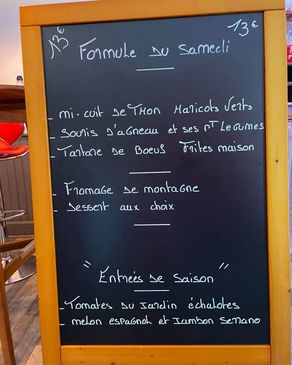 13€
13€
Formule du Samedi
- mi-cuit de Thon Haricots Verts
- Souris d'agneau et ses pT Legumes
- Tartare de Boeuf Frites maison
- Fromage de montagne
- Dessert aux choix
"Entrées de Saison"
- Tomates du Jardin échalotes
- melon espagnol et Jambon Serrano